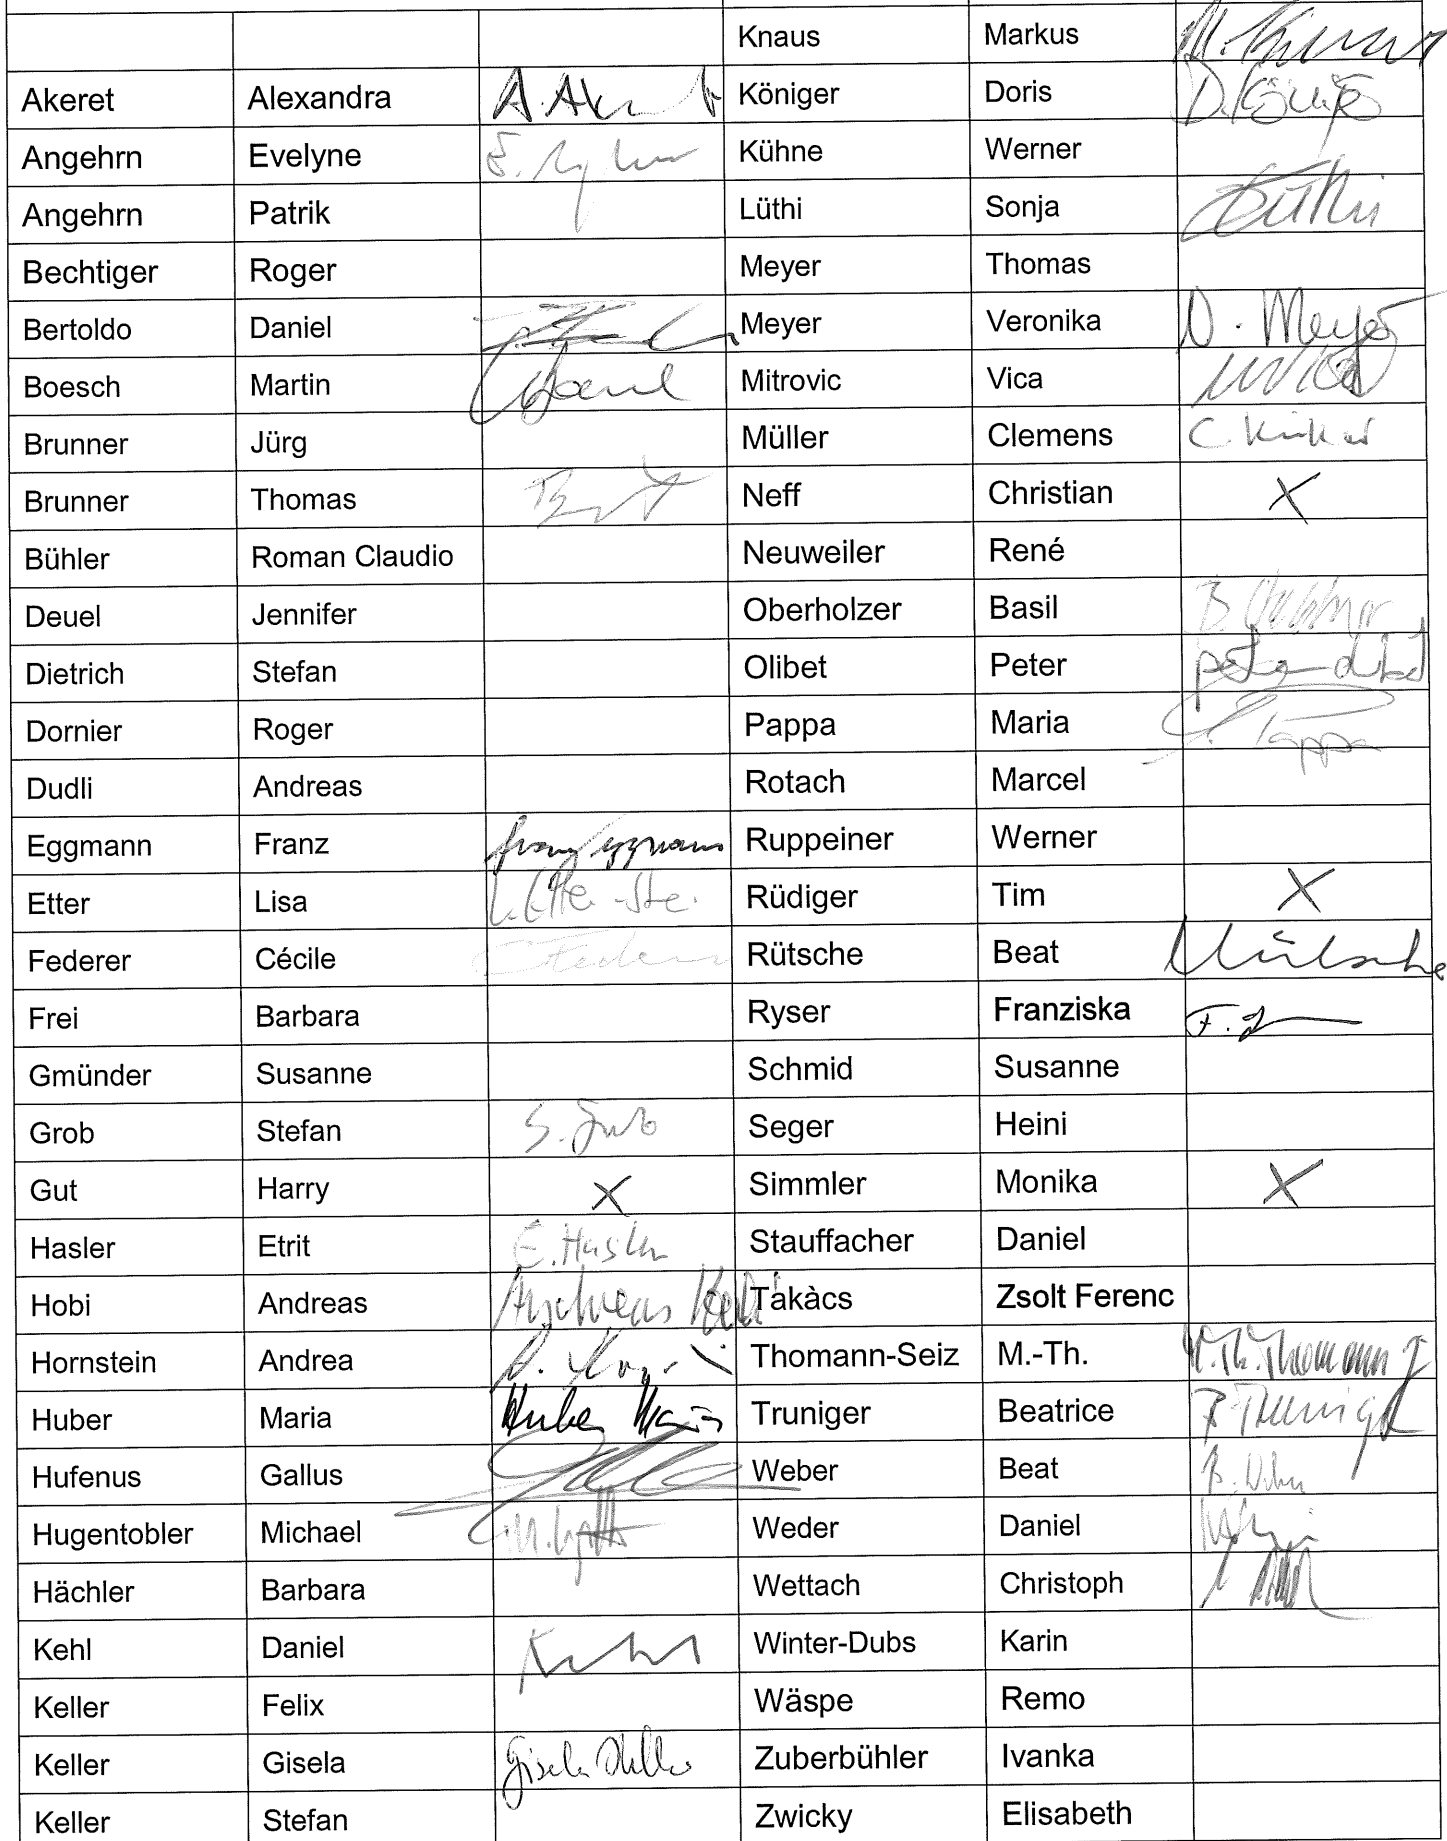 Knaus Markus
Akeret Alexandra A. Aker t Königer Doris D. König
Angehrn Evelyne Kühne Werner
Angehrn Patrik Lüthi Sonja SLüthi
Bechtiger Roger Meyer Thomas
Bertoldo Daniel Meyer Veronika V. Meyer
Boesch Martin Mitrovic Vica
Brunner Jürg Müller Clemens
Brunner Thomas Neff Christian X
Bühler Roman Claudio Neuweiler René
Deuel Jennifer Oberholzer Basil
Dietrich Stefan Olibet Peter peter olibet
Dornier Roger Pappa Maria Pappa
Dudli Andreas Rotach Marcel
Eggmann Franz franz eggmann Ruppeiner Werner
Etter Lisa Rüdiger Tim X
Federer Cécile C Federer Rütsche Beat Rütsche
Frei Barbara Ryser Franziska
Gmünder Susanne Schmid Susanne
Grob Stefan S. Grob Seger Heini
Gut Harry X Simmler Monika X
Hasler Etrit E. Hasler Stauffacher Daniel
Hobi Andreas Andreas Hobi Takàcs Zsolt Ferenc
Hornstein Andrea Thomann-Seiz M.-Th. M.Th. Thomann
Huber Maria Huber Maria Truniger Beatrice B Truniger
Hufenus Gallus Weber Beat B. Weber
Hugentobler Michael Weder Daniel
Hächler Barbara Wettach Christoph
Kehl Daniel Kehl Winter-Dubs Karin
Keller Felix Wäspe Remo
Keller Gisela Gisela Keller Zuberbühler Ivanka
Keller Stefan Zwicky Elisabeth